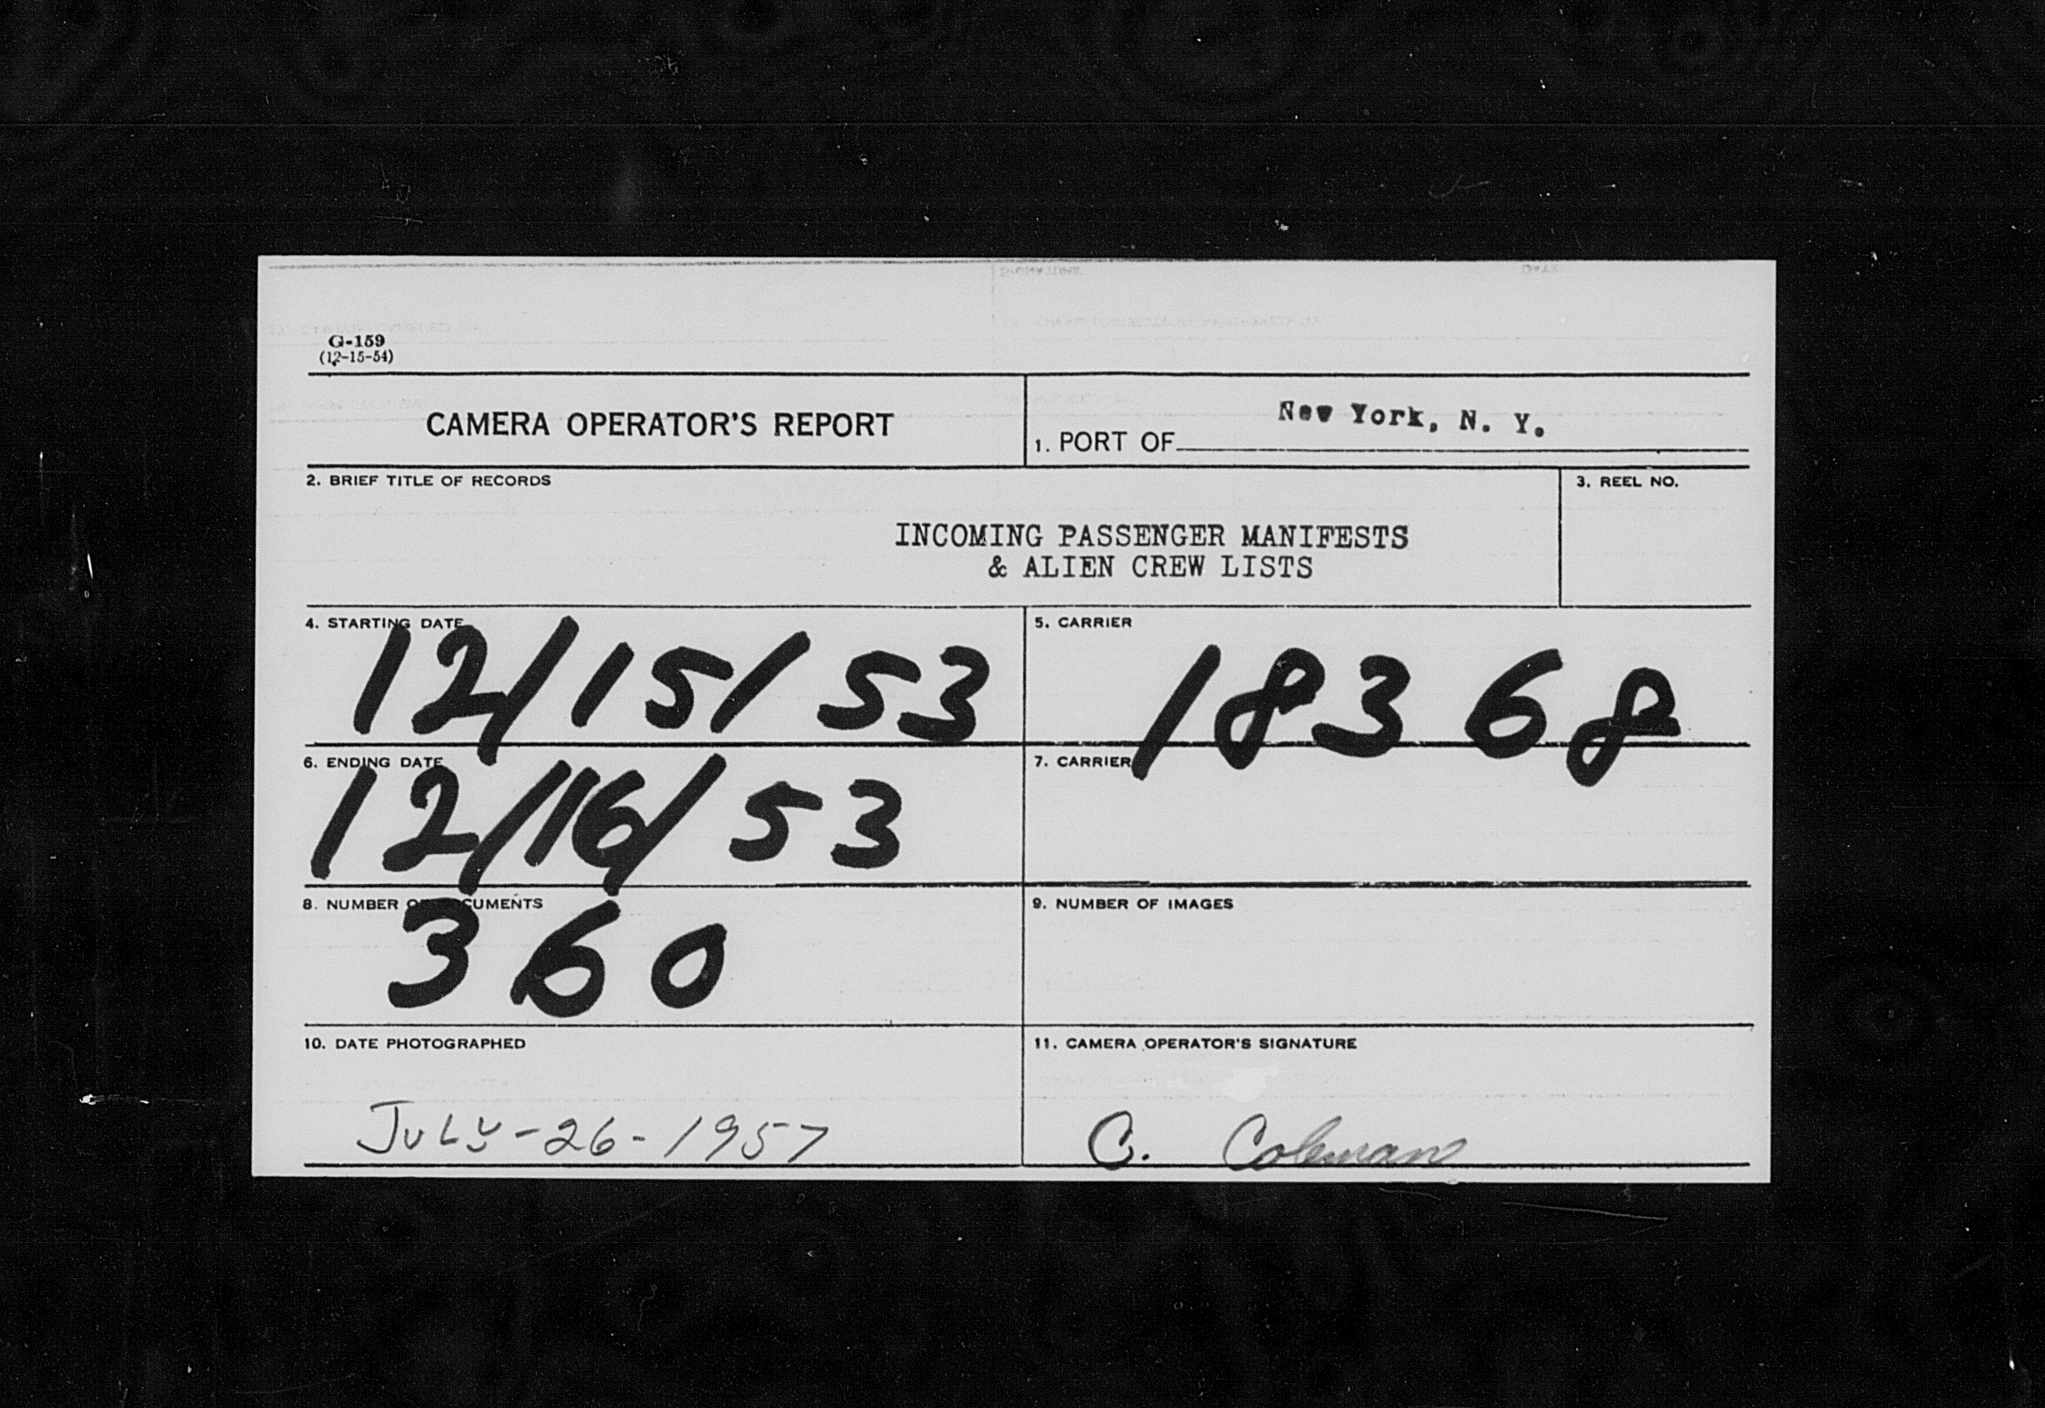 G-159
(12-15-54)
CAMERA OPERATOR'S REPORT
1. PORT OF New York, N. Y.
2. BRIEF TITLE OF RECORDS
3. REEL NO.
INCOMING PASSENGER MANIFESTS
& ALIEN CREW LISTS
4. STARTING DATE
12/15/53
5. CARRIER
18368
6. ENDING DATE
12/16/53
7. CARRIER
8. NUMBER OF DOCUMENTS
360
9. NUMBER OF IMAGES
10. DATE PHOTOGRAPHED
JULY-26-1957
11. CAMERA OPERATOR'S SIGNATURE
C. Coleman